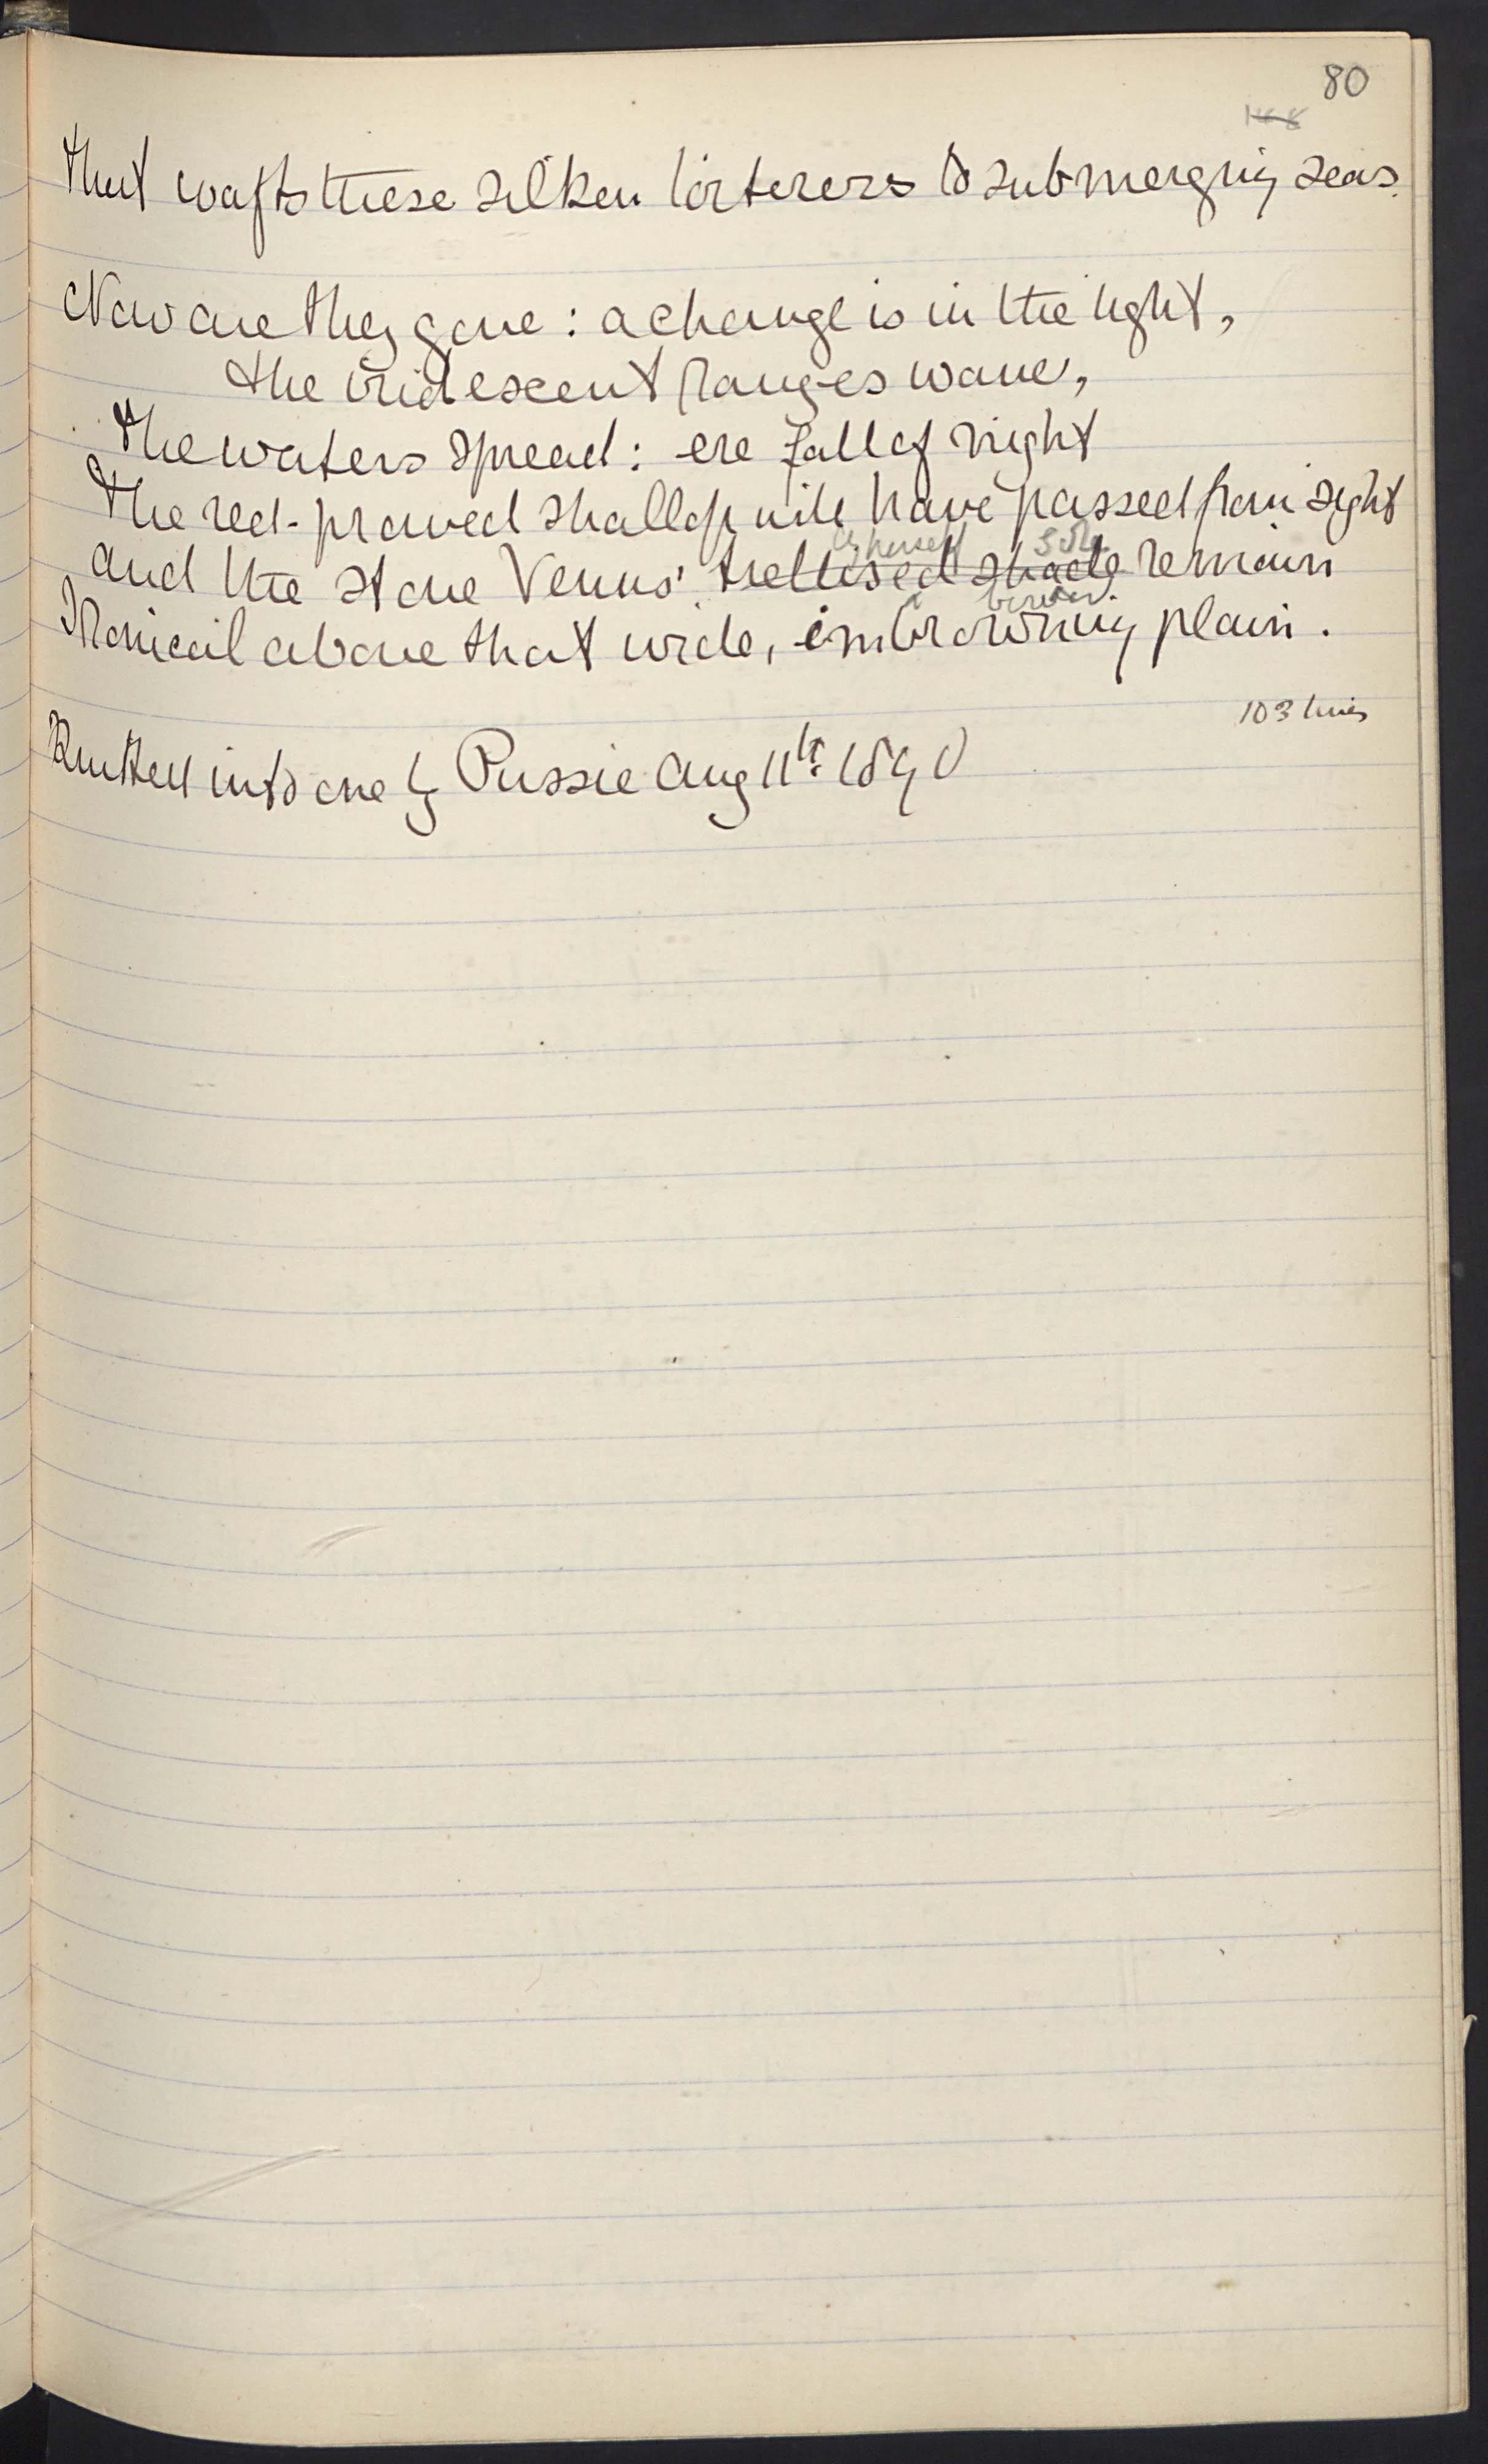 80
that wafts these silken loiterers to submerging seas.
Now are they gone: a change is in the light,
the iridescent ranges wane,
the waters spread: ere fall of night
the red-prowed shallop will have passed from sight
by herself sole
and the stone Venus' trellised shade remain
Ironical above that wide, embrowning plain.
103 lines
into one by Pussie Aug 11th 1890